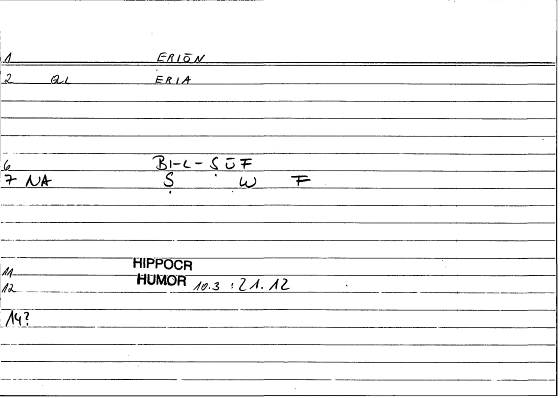 1 ERIŌN
2 QL ERIA
6 BI-L-ṢŪF
7 NA Ṣ W F
11 HIPPOCR
12 HUMOR 10.3 : 21.12
14?